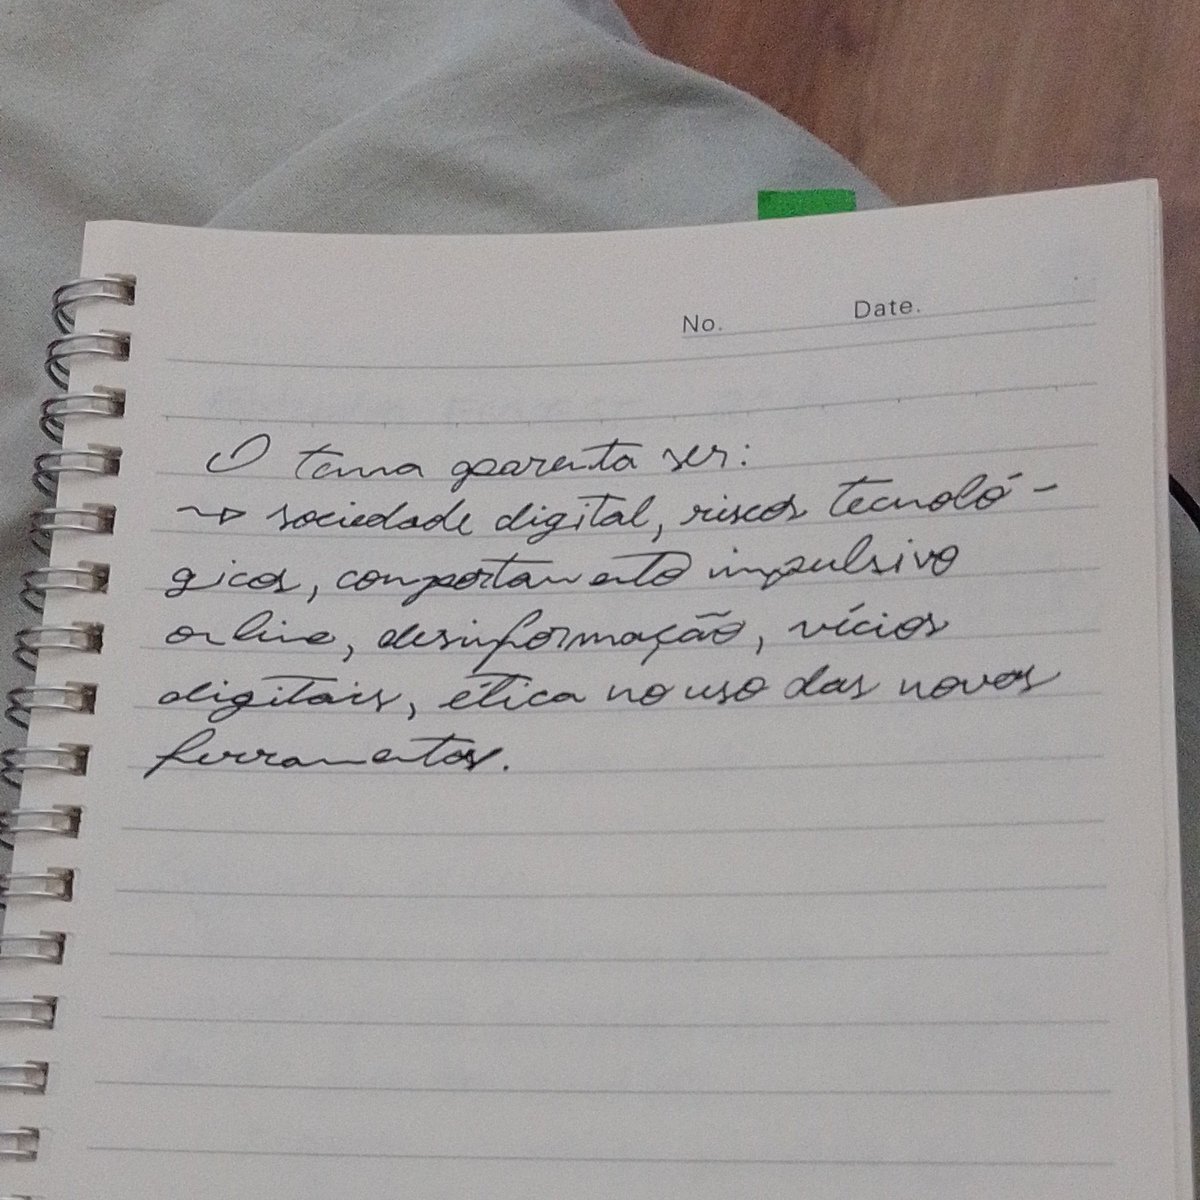 No. Date.
O tema aparenta ser:
~> sociedade digital, riscos tecnoló-
gicos, comportamento impulsivo
online, desinformação, vícios
digitais, ética no uso das novas
ferramentas.